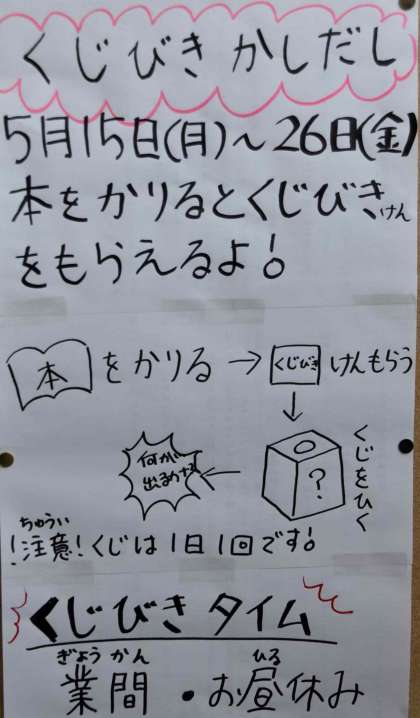 くじびきかしだし
5月15日(月)～26日(金)
本をかりるとくじびきけん
をもらえるよ!
本をかりる→くじびきけんもらう
↓
くじをひく
?
←
何が
出るかな
ちゅうい
!注意!くじは1日1回です!
くじびきタイム
ぎょうかん ひる
業間・お昼休み